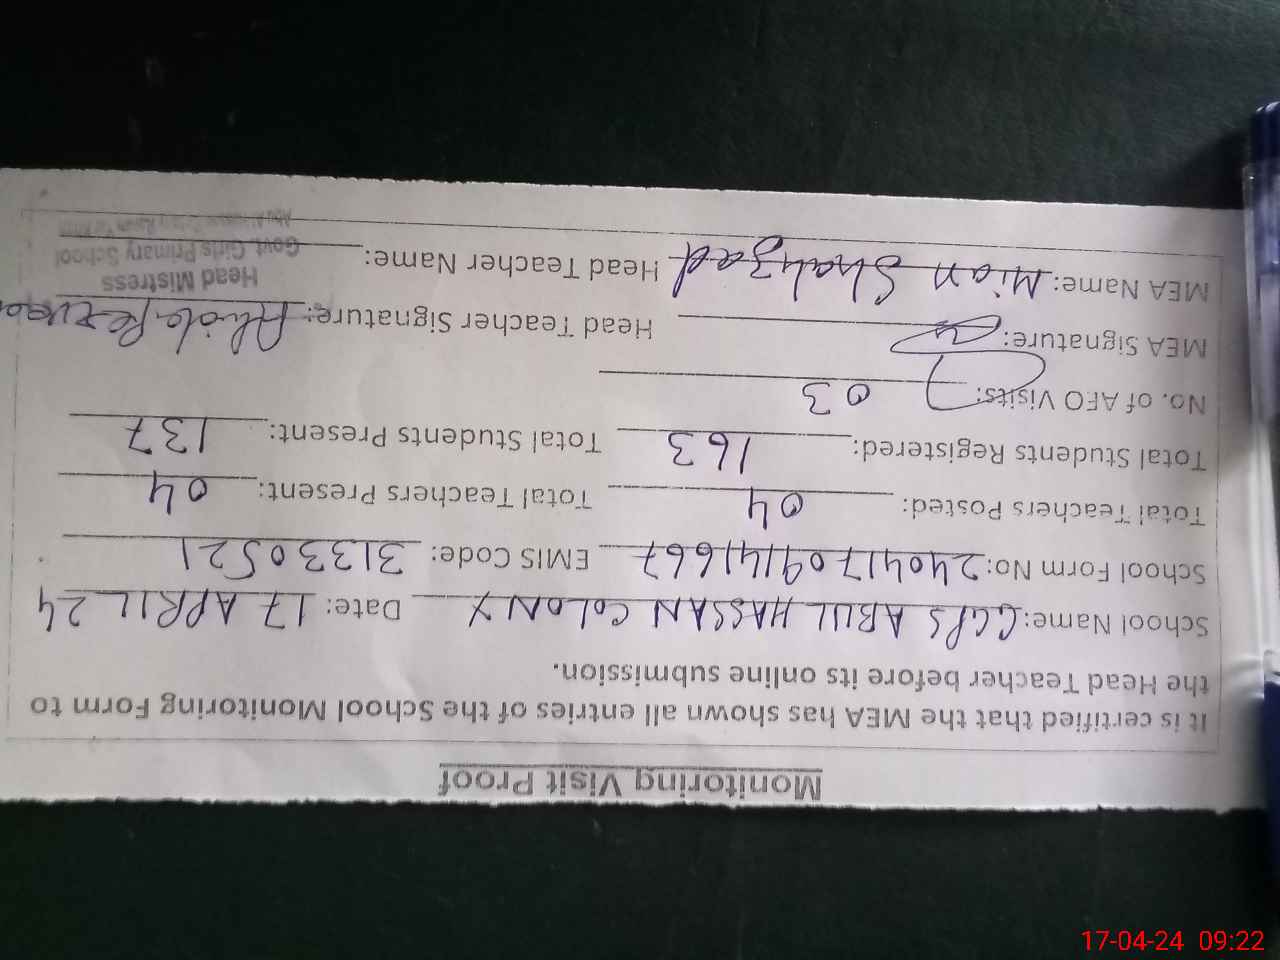 Monitoring Visit Proof
It is certified that the MEA has shown all entries of the School Monitoring Form to
the Head Teacher before its online submission.
School Name: GGPS ABUL HASSAN COLONY Date: 17 APRIL 24
School Form No: 24041709141667 EMIS Code: 31330521
Total Teachers Posted: 04 Total Teachers Present: 04
Total Students Registered: 163 Total Students Present: 137
No. of AEO Visits: 03
MEA Signature: Head Teacher Signature:
MEA Name: Mian Shahzad Head Teacher Name:
Head Mistress
Govt. Girls Primary School
17-04-24 09:22